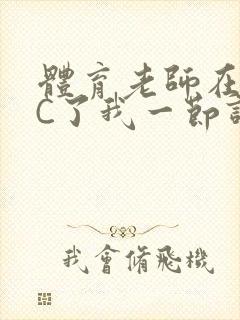 體育老師在
C了我一節
我會脩飛機